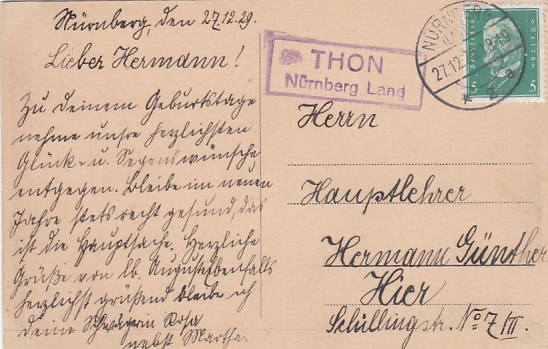 Nürnberg, den 27.12.29.
Lieber Hermann!
Zu deinem Geburtstage
nehme unsre herzlichsten
Glück- u. Segenswünsche
entgegen. Bleibe im neuen
Jahre stets recht gesund, das
ist die Hauptsache. Herzliche
Grüße von lb. August ebenfalls
herzlichst grüßend bleibe ich
deine Schwägerin Rosa
nebst Martha.
THON
Nürnberg Land
NÜRNBERG
27.12.
5 5
Herrn
Hauptlehrer
Hermann Günther
Hier
Schillingstr. No 7/III.